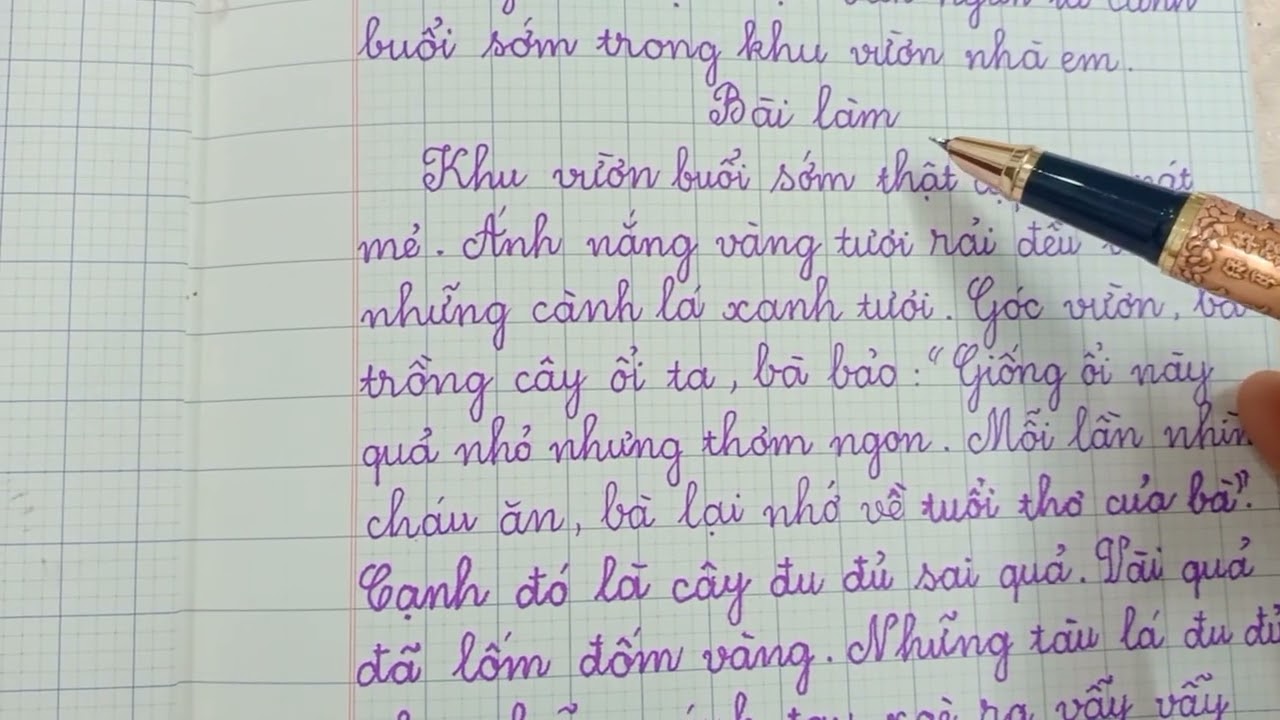 buổi sớm trong khu vườn nhà em.
Bài làm
Khu vườn buổi sớm thật mát
mẻ. Ánh nắng vàng tươi rải đều
những cành lá xanh tươi. Góc vườn, bà
trồng cây ổi ta, bà bảo: "Giống ổi này
quả nhỏ nhưng thơm ngon. Mỗi lần nhìn
cháu ăn, bà lại nhớ về tuổi thơ của bà".
Cạnh đó là cây đu đủ sai quả. Vài quả
đã lốm đốm vàng. Những tàu lá đu đủ
xoè ra vẫy vẫy